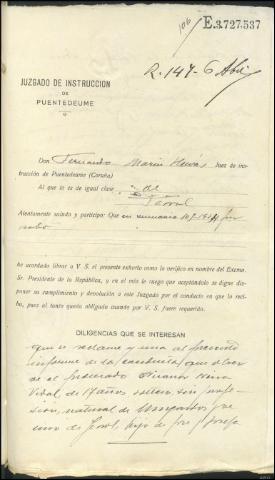 106
E.3.727.537
R. 147-6 Abril
JUZGADO DE INSTRUCCION
DE
PUENTEDEUME
Don Fernando Marin Juez de ins-
trucción de Puentedeume (Coruña)
Al que lo es de igual clase de
Ferrol
Atentamente saludo y participo: Que en sumario por
robo
he acordado librar a V. S. el presente exhorto como lo verifico en nombre del Excmo.
Sr. Presidente de la República, y en el mío le ruego que aceptándolo se digne dispo-
ner su cumplimiento y devolución a este Juzgado por el conducto en que lo reci-
ba, pues al tanto queda obligado cuando por V. S. fuere requerido.
DILIGENCIAS QUE SE INTERESAN
que se reclame y una al presente
informe de la conducta que observe
el procesado
Vidal de 17 años soltero sin profe-
sión, natural de y ve-
cino de Ferrol, hijo de José y Josefa